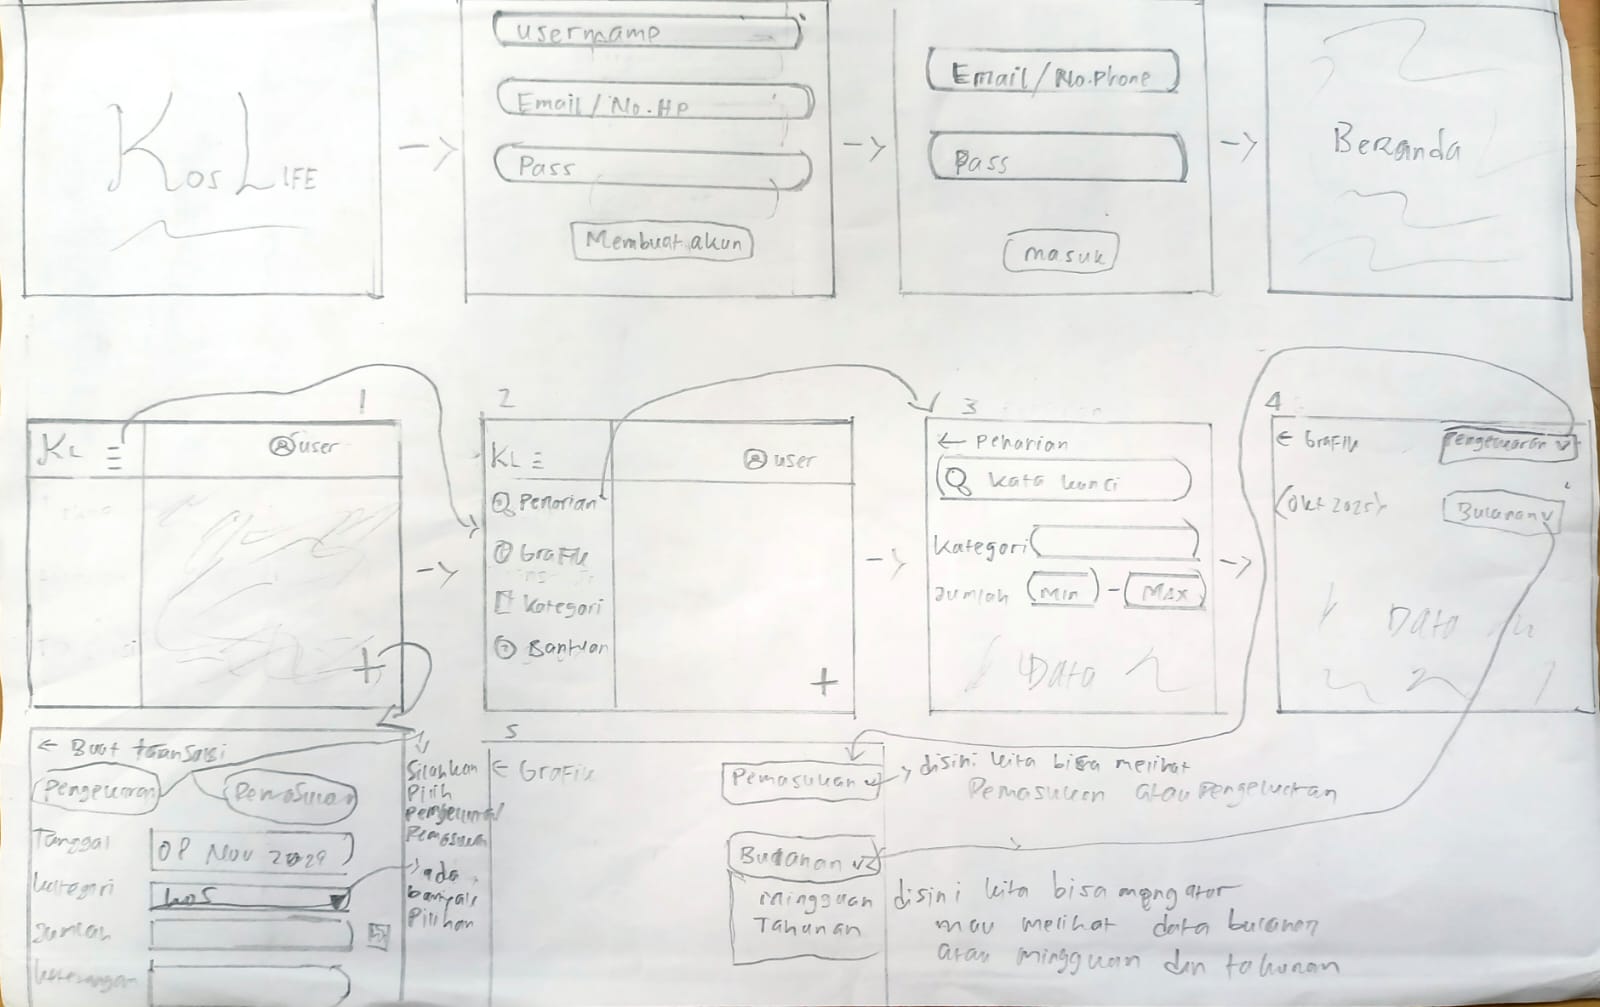 KOSLIFE
username
Email / No.HP
Pass
Membuat akun
Email / No.Phone
Pass
masuk
Beranda
1
KL
user
2
KL
user
Penarian
Grafik
Kategori
Bantuan
+
3
← Penarian
kata kunci
Kategori
Jumlah (Min) - (Max)
Data
4
← Grafik
Pengeluaran v
<Okt 2025>
Bulanan v
Data
+
← Buat transaksi
Pengeluaran
Pemasukan
Tanggal
08 Nov 2029
Kategori
kos
Jumlah
keterangan
Silahkan
Pilih
pengeluaran/
Pemasukan
ada
banyak
Pilihan
5
← Grafik
Pemasukan v
disini kita bisa melihat
Pemasukan atau pengeluaran
Bulanan v
mingguan
Tahunan
disini kita bisa mengatur
mau melihat data bulanan
atau mingguan dan tahunan